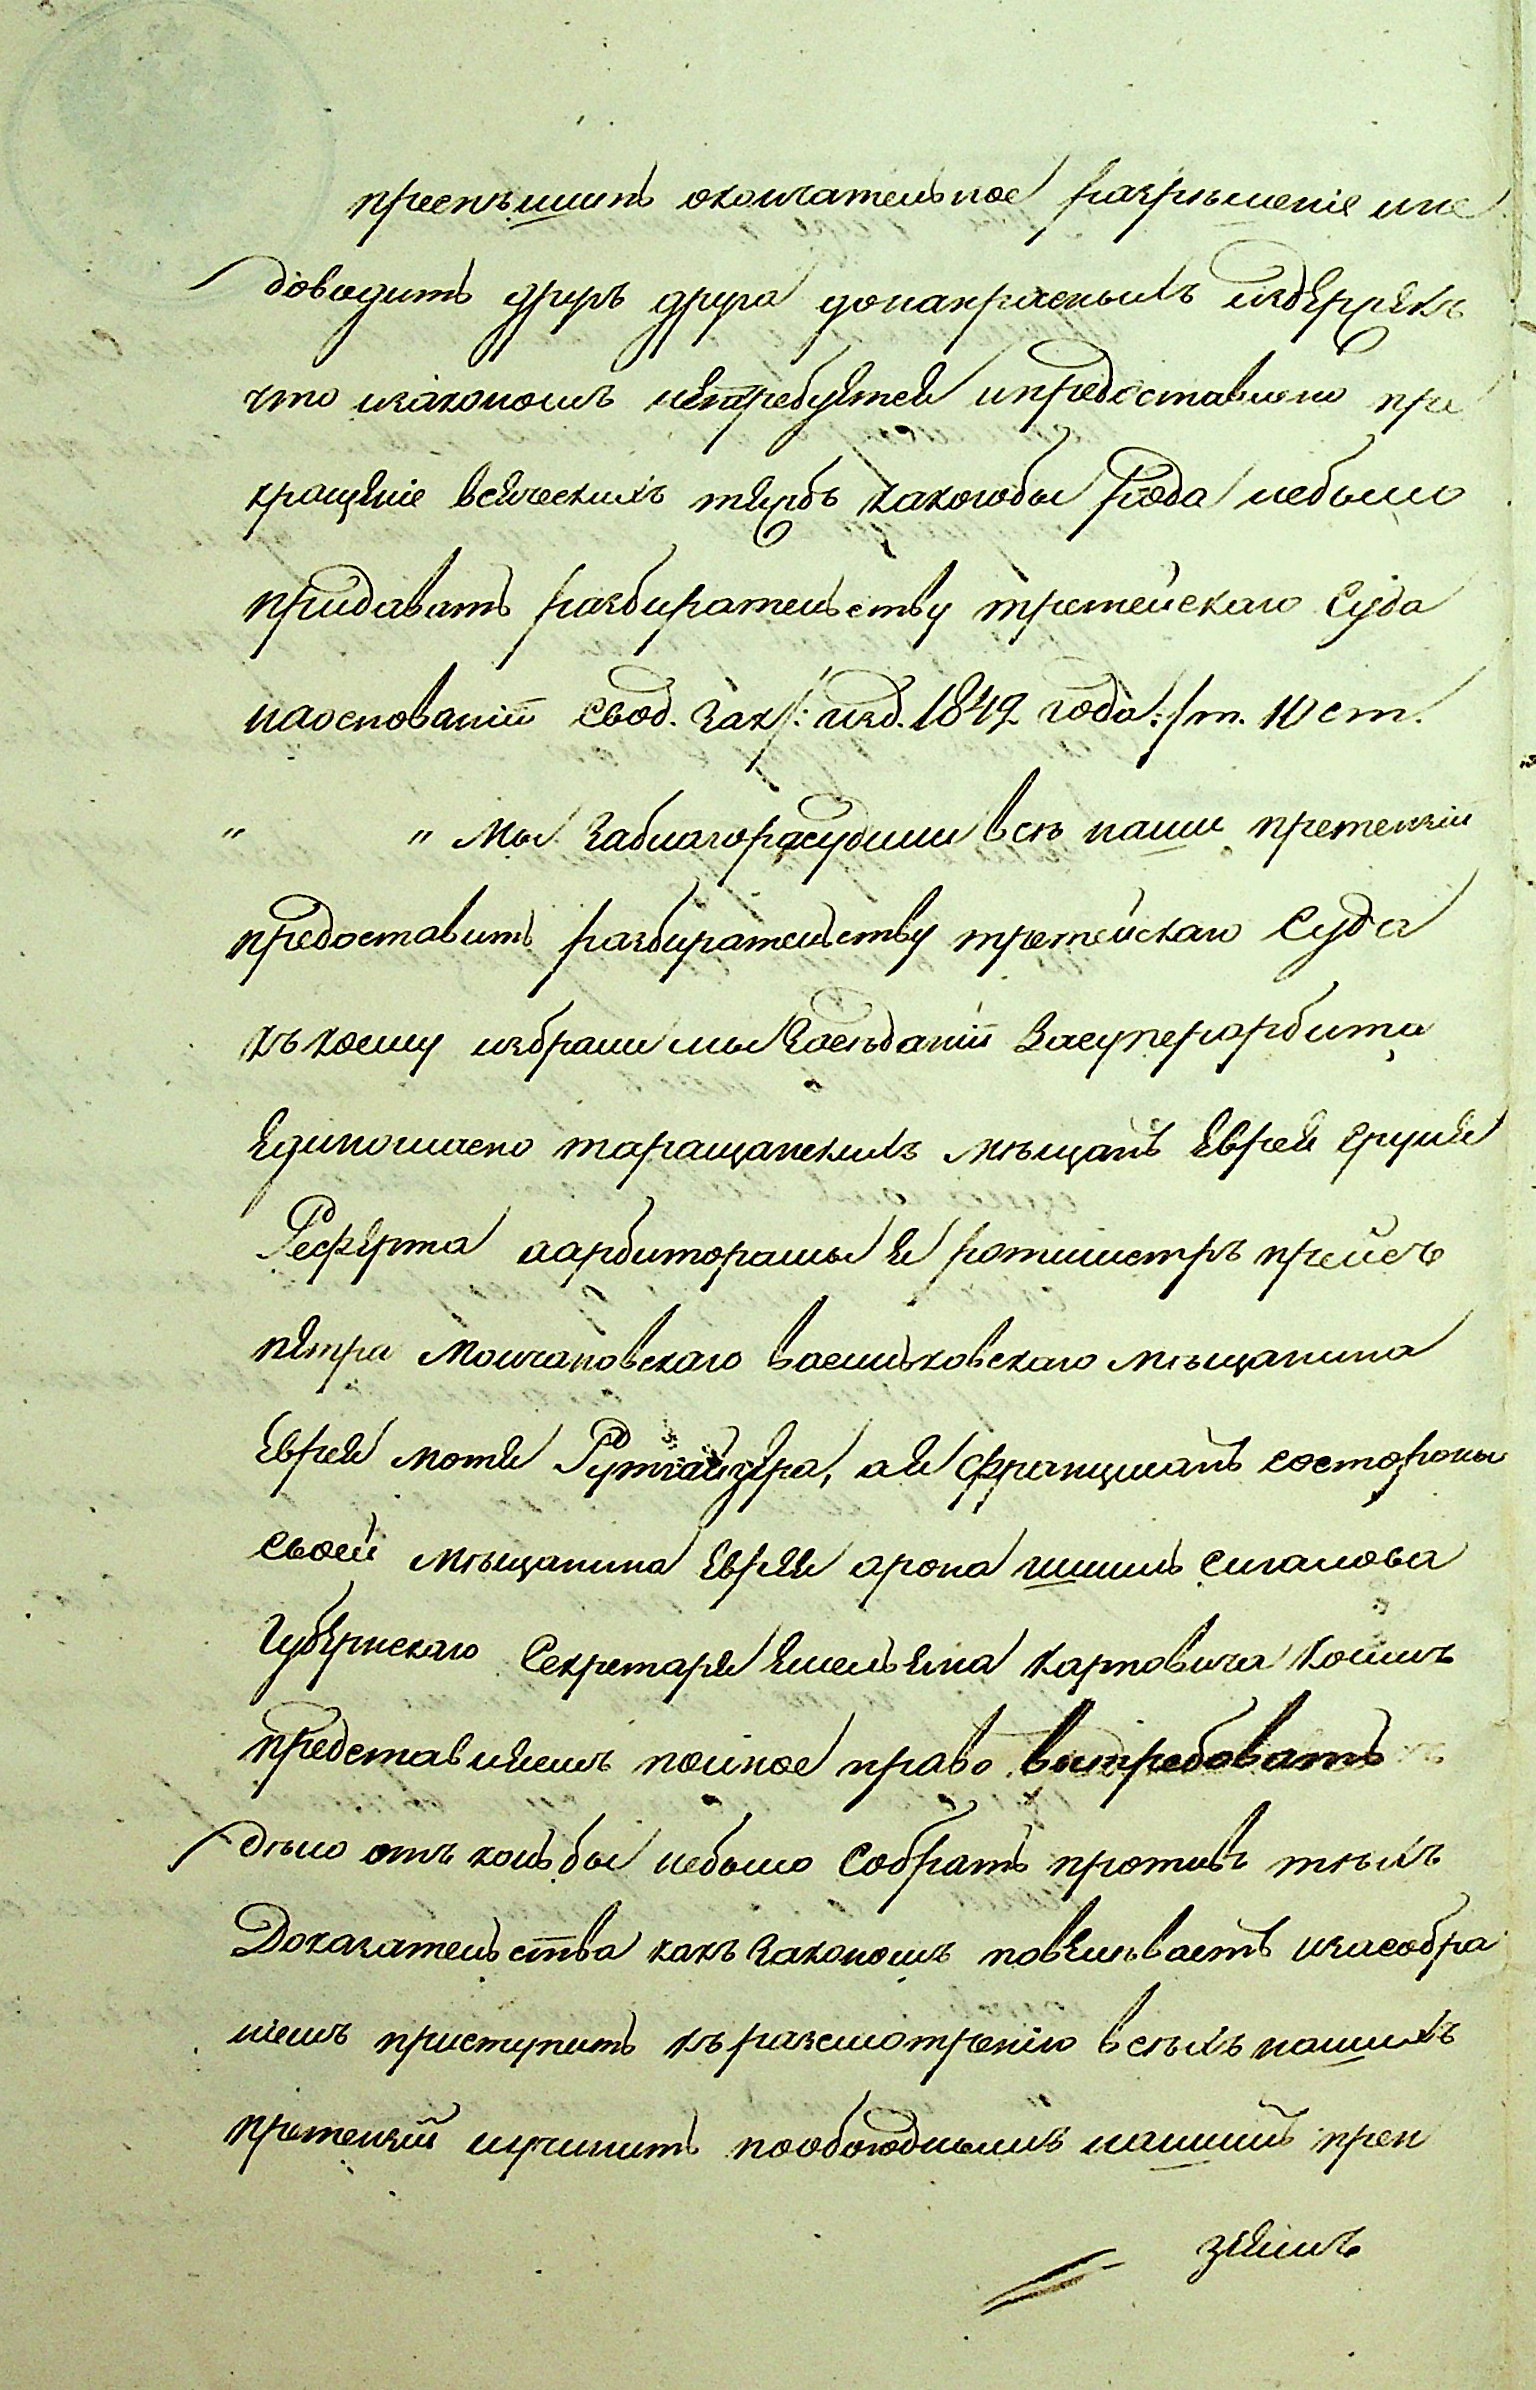 преспѣшить окончательное разрѣшеніе ине
доводить другъ друга донапрасныхъ издержекъ
что изакономъ непребуется ипредоставлено пре
кращеніе всяческихъ тяжбъ какогобы Рода небыло
придавать разбирательству третейскаго Суда
наоснованіи Свод. Зак /: изд. 1842 года :/ т. 10 ст.
" " Мы заблагоразсудили всѣ наши претензіи
предоставить разбирательству третейскаго Суда
къкоему избрали мы Засуперарбитра
единогласно таращанскихъ мѣщанъ Еврея Сруля
Реферта аарбиторамы я ротмистръ
петра Молчановскаго Васильковскаго мѣщанина
Еврея мотя, ая Францишанъ состороны
своей мѣщанина Еврея арона сигалова
Губернскаго Секретаря Емельяна карповича Коимъ
представляемъ полное право витребовать
дѣло отъ кого бы небыло Собрать противъ тѣхъ
Доказательства какъ Закономъ повелѣваетъ изасобра
ніемъ приступить къразсмотренію всѣхъ нашихъ
претензій иучинить пообоюднымъ нашимъ прен
зіямъ